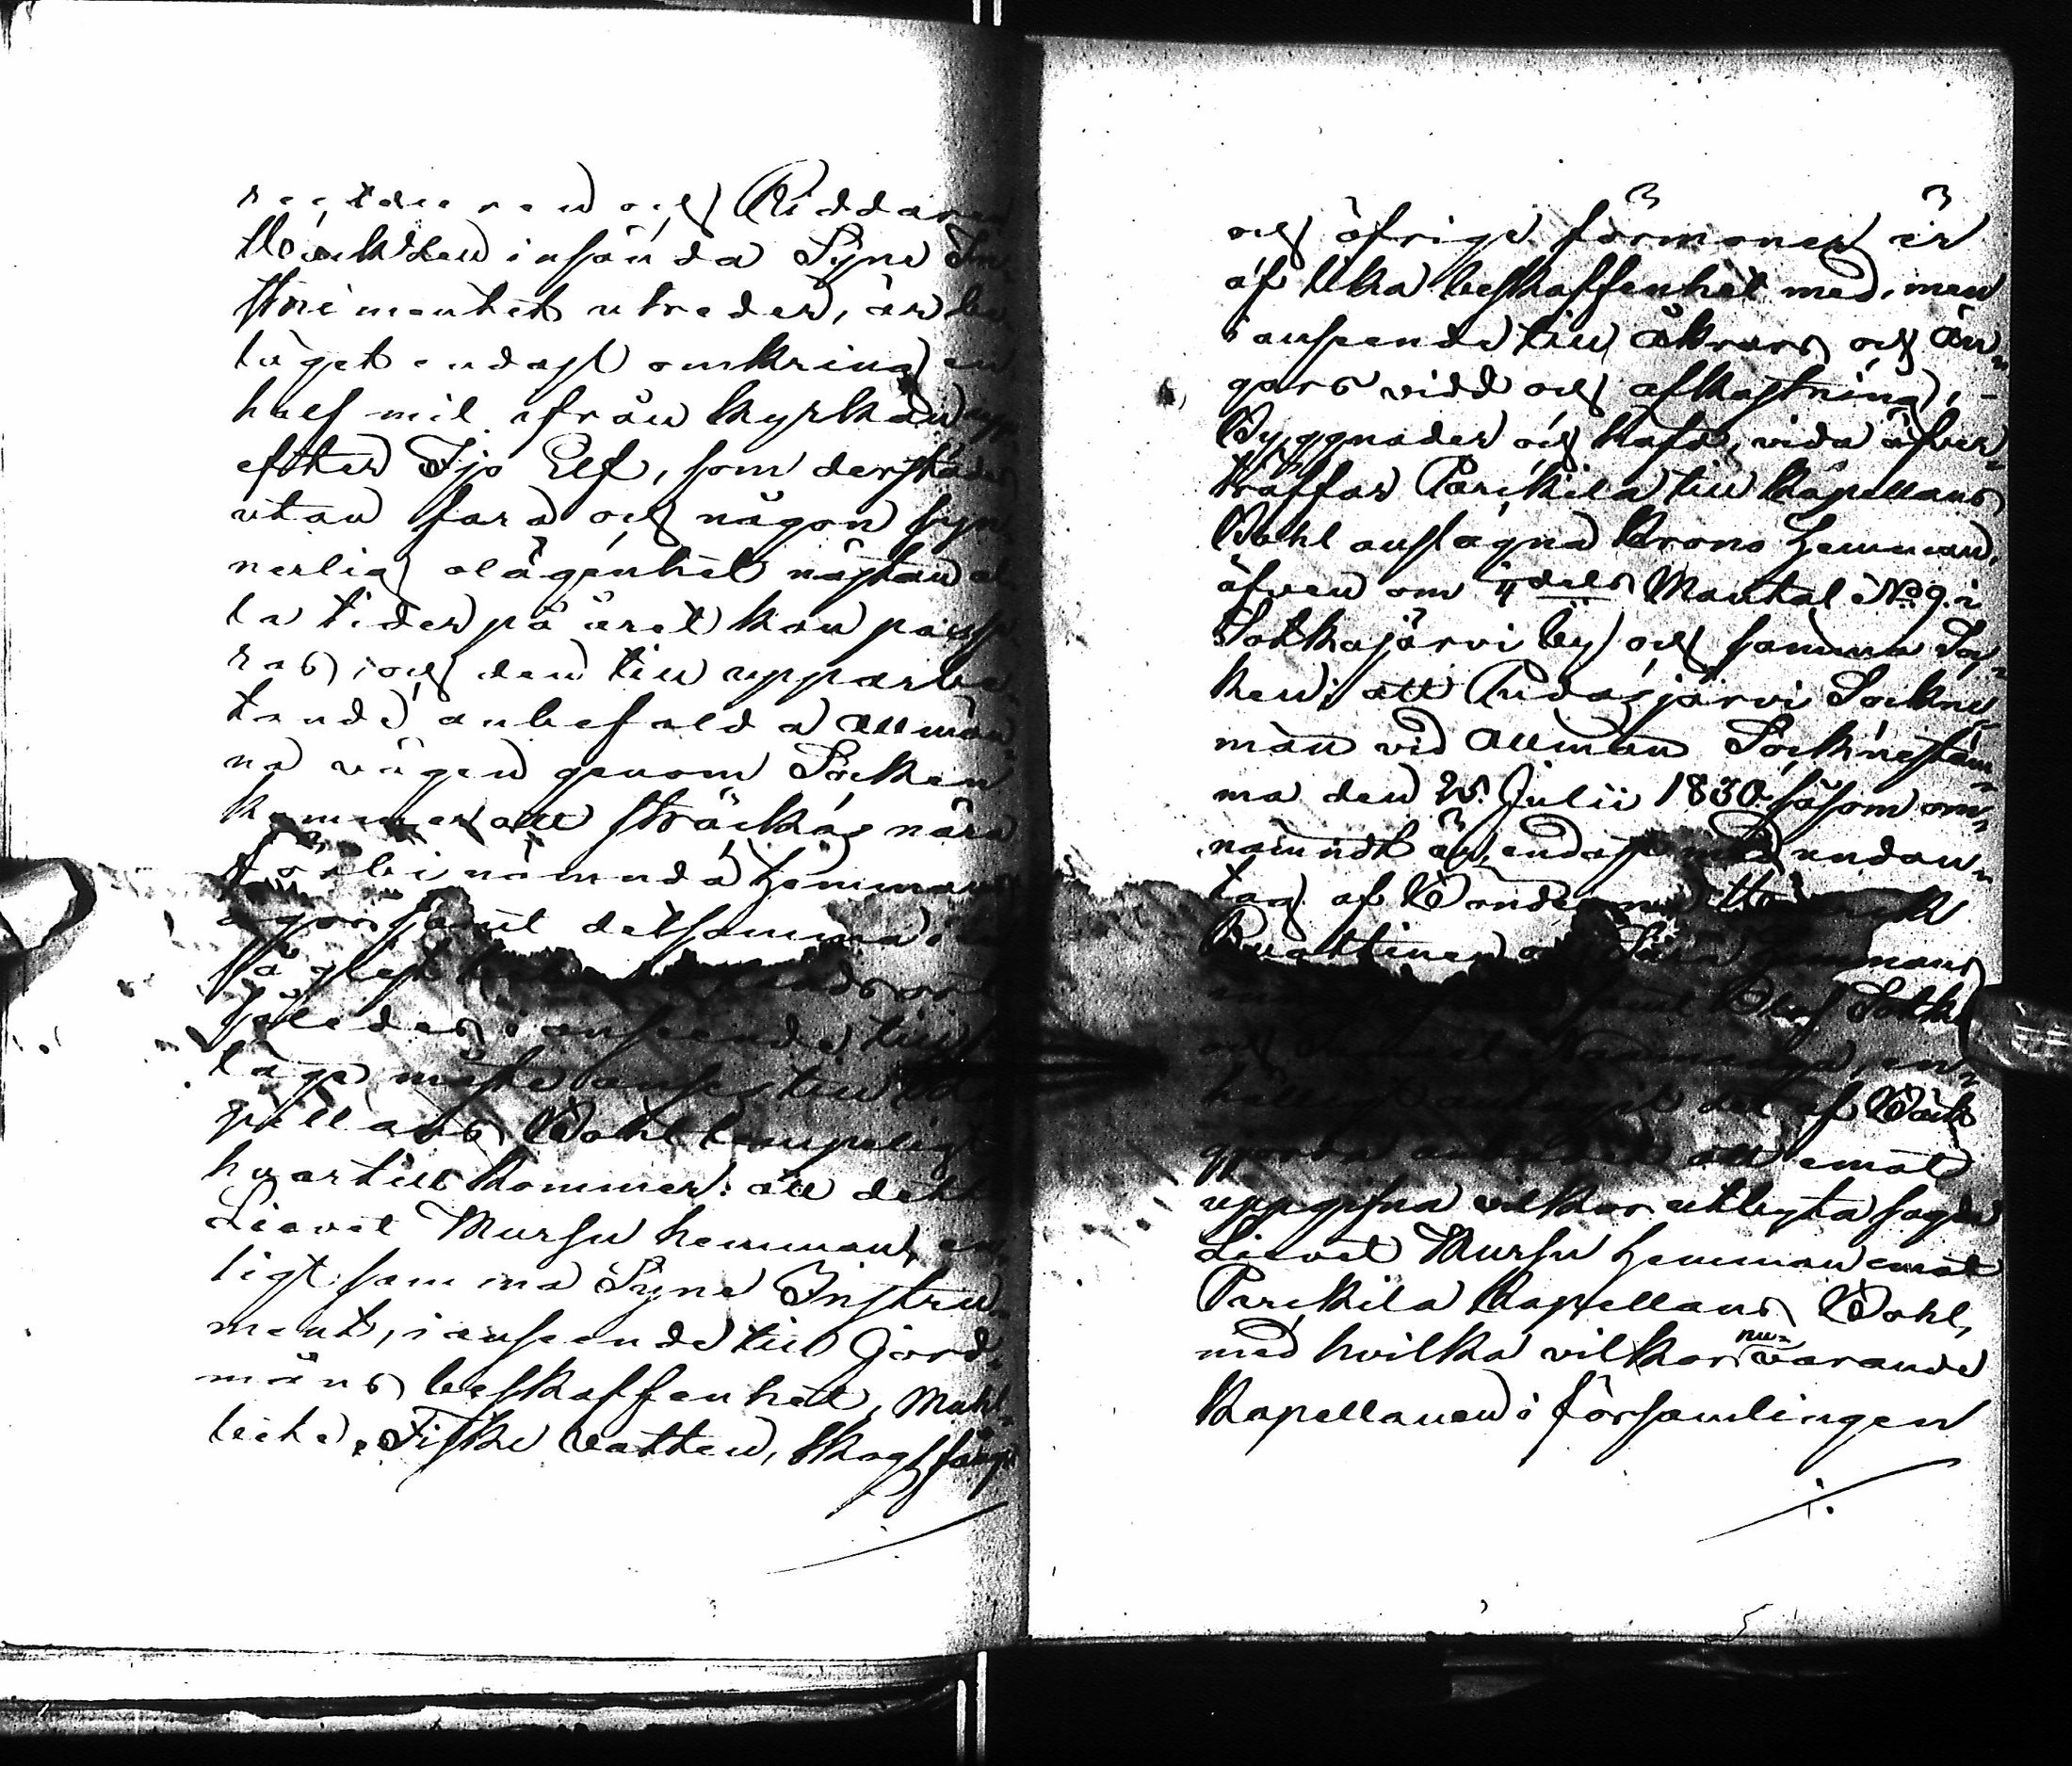 och Riddaren
insända Syne In-
strumentet utreder, är be-
läget endast omkring en
half mil ifrån kyrkan upp-
efter Ijo Elf, som derstädes
utan fara och någon syn-
nerlig olägenhet nästan al-
la tider på året kan passe-
ras, och den till upparbe-
tande anbefalda allmän-
na vägen genom Socken
kommer att sträckas nära
förbi nämnda Hemmans
ägor, samt detsamma i en
så
således i anseende till
läge måste anses till Ka-
pellans Bohl lämpeligt
hvartill kommer: att detta
Liavet Mursu hemman, en-
ligt samma Syne Instru-
ment, i anseende till Jord-
måns beskaffenhet, Muhl-
bete, Fiske vatten, Skogsfång
och öfrige förmoner är
af lika beskaffenhet med, men
i anseende till åkrars och Än-
gars vidd och afkastning,
Byggnader och häfd, vida öfver-
träffar Parikila till Kapellans
Bohl anslagna Krono Hemman,
äfven om 1/4 dels Mantal i No 9 i
Sotkajärvi by och samma Soc-
ken; att Pudasjärvi Sockne-
män vid Allmän Socknestäm-
ma den 25 Julii 1830 såsom om-
nämndt är, endast med undan-
tag af Bonden
Puattinen och Hemmans
samt Olof Sotka
och en-
hälligt det af Bäck
gjorda att emot
uppgifna vilkor utbyta sagde
Liavet Mursu Hemman emot
Parikila Kapellans Bohl,
med hvilka vilkor nu-varande
Kapellanen i församlingen
./.